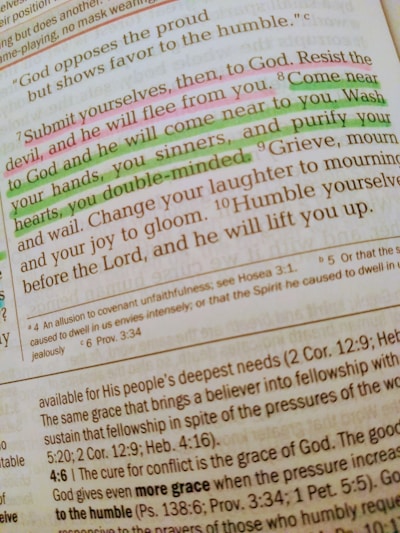 elves
eir position
ng but does another.
me-playing, no mask wearing
"God opposes the proud
but shows favor to the humble."c
7Submit yourselves, then, to God. Resist the
devil, and he will flee from you. 8Come near
to God and he will come near to you. Wash
your hands, you sinners, and purify your
hearts, you double-minded. 9Grieve, mourn
and wail. Change your laughter to mourning
and your joy to gloom. 10Humble yourselve
before the Lord, and he will lift you up.
a 4 An allusion to covenant unfaithfulness; see Hosea 3:1. b 5 Or that the s
caused to dwell in us envies intensely; or that the Spirit he caused to dwell in u
jealously c 6 Prov. 3:34
available for His people's deepest needs (2 Cor. 12:9; Heb
The same grace that brings a believer into fellowship with
sustain that fellowship in spite of the pressures of the wo
5:20; 2 Cor. 12:9; Heb. 4:16).
4:6 | The cure for conflict is the grace of God. The good
God gives even more grace when the pressure increas
to the humble (Ps. 138:6; Prov. 3:34; 1 Pet. 5:5). Go
responsive to the prayers of those who humbly reque